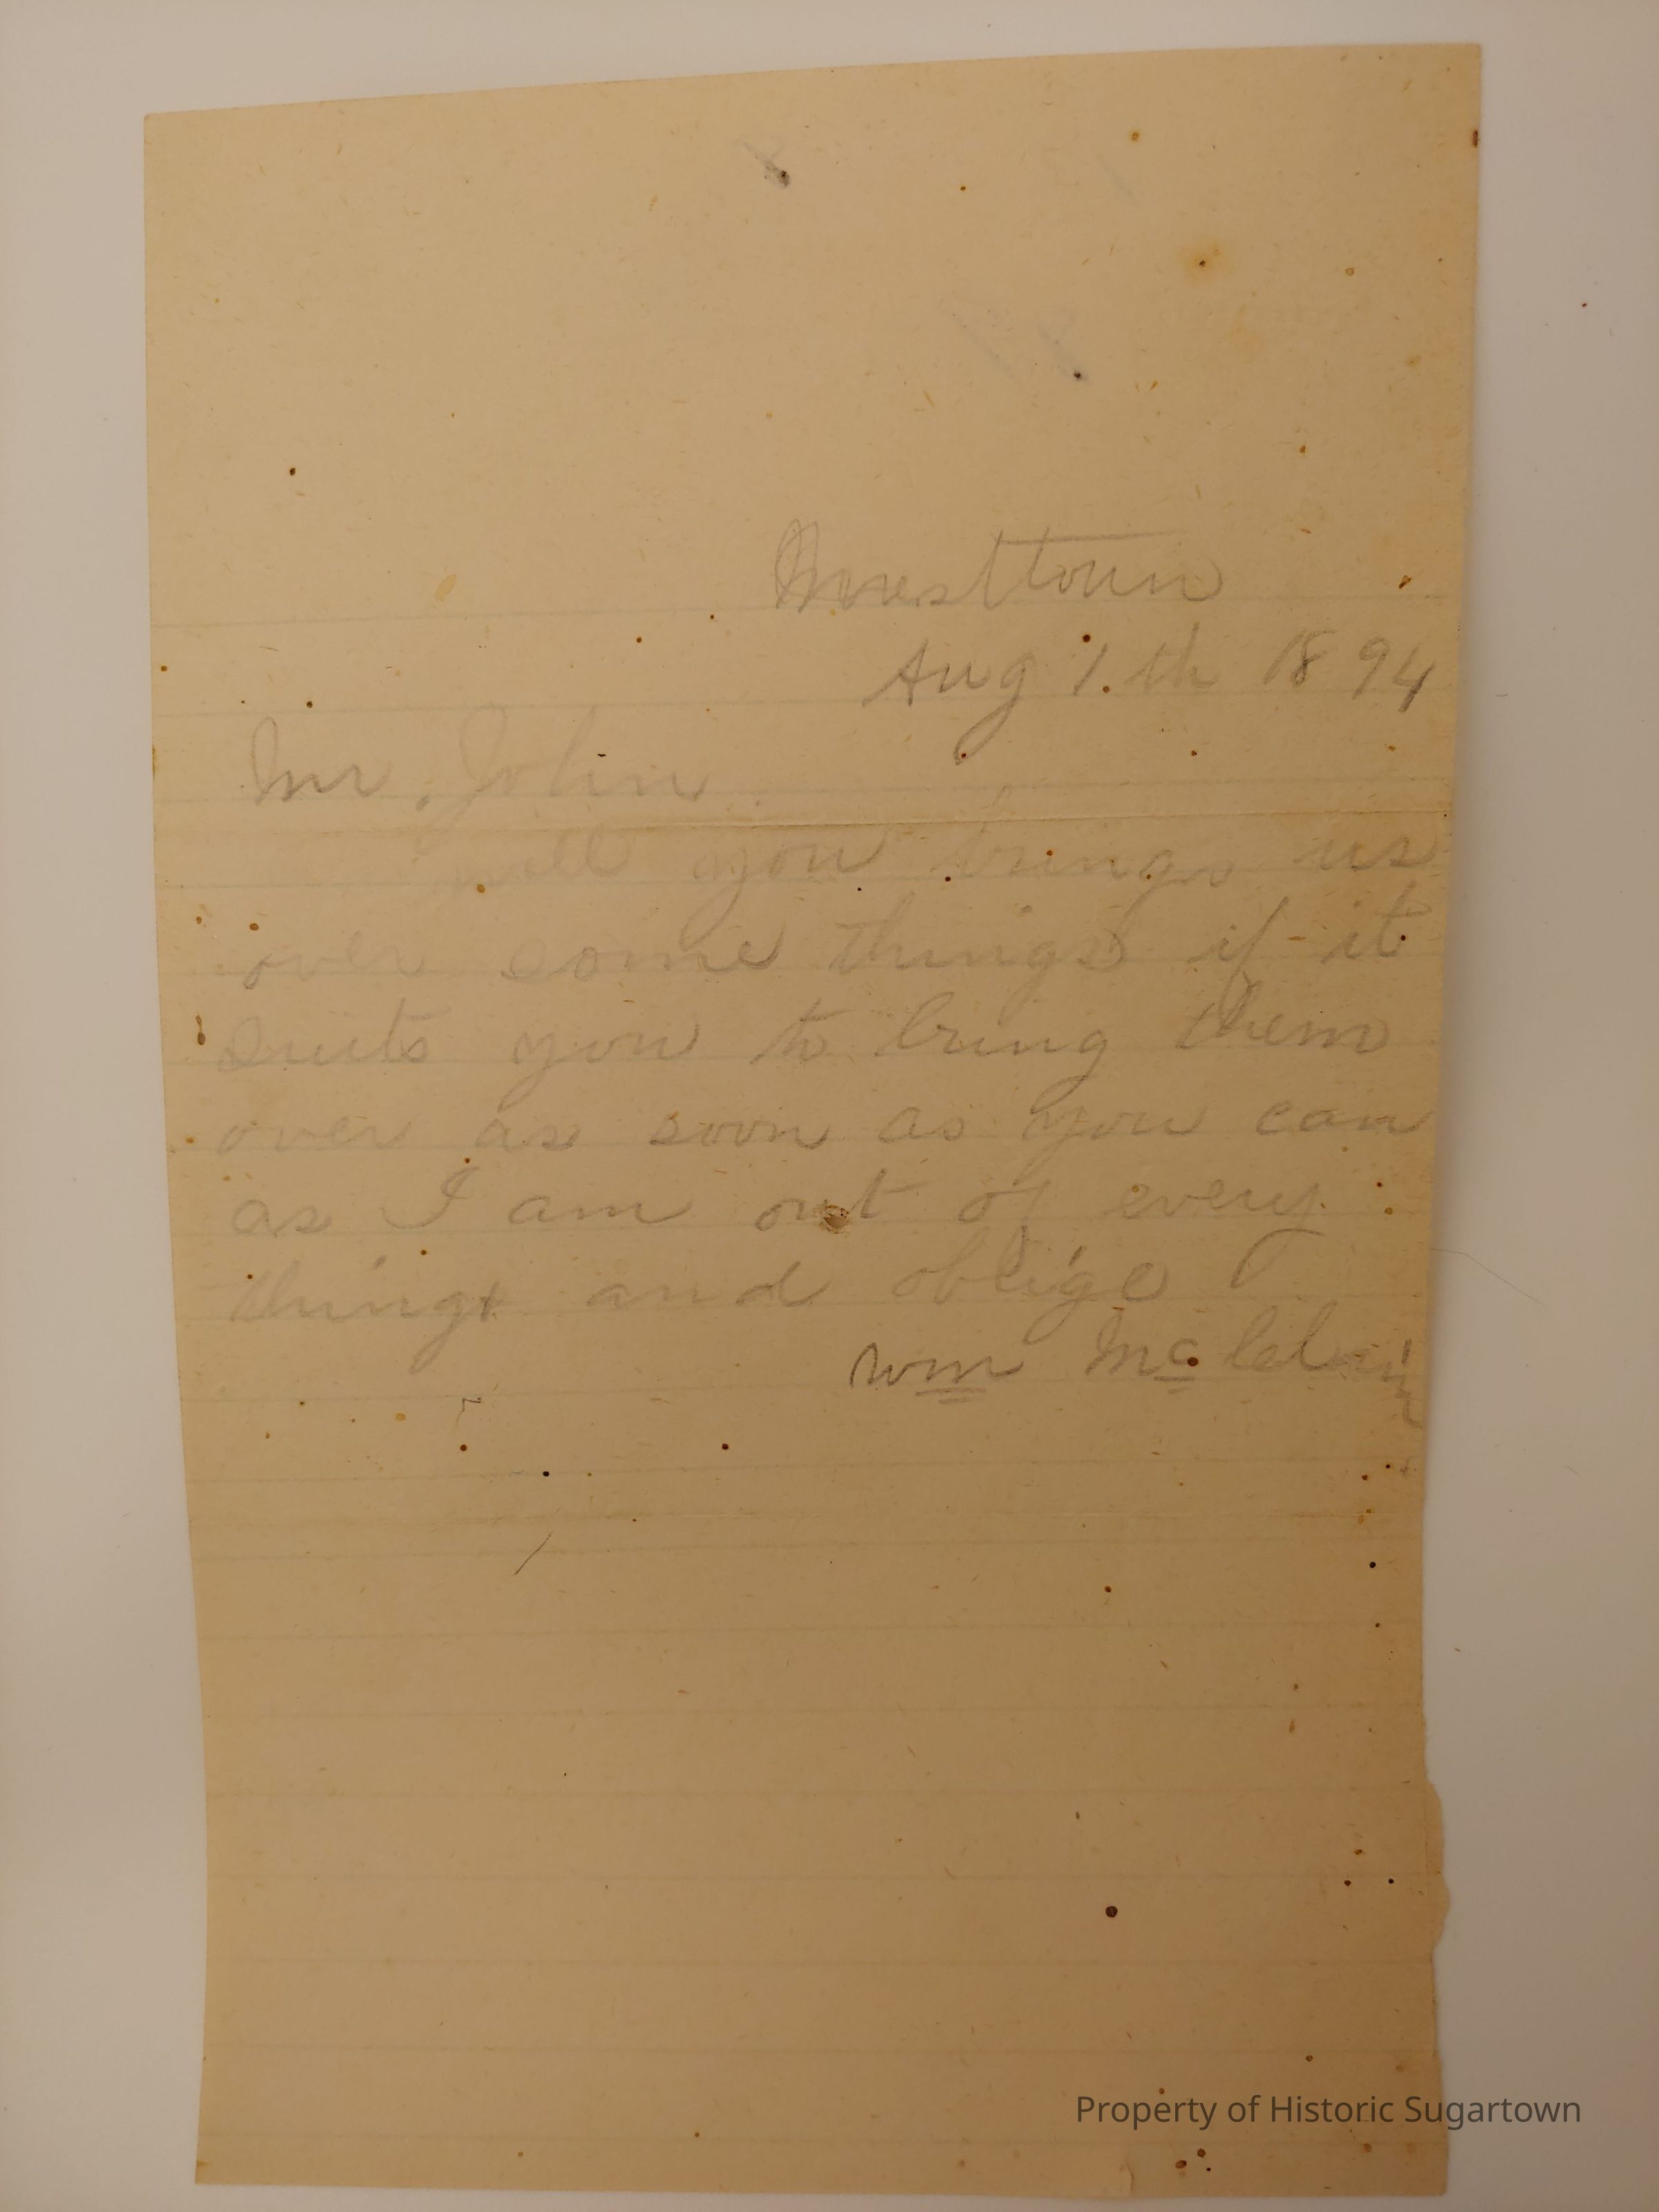 Westtown
Aug 1.th 1894
Mr. John
will you brings us
over some things if it
suits you to bring them
over as soon as you can
as I am out of every
thing and oblige
Wm Mc
Property of Historic Sugartown